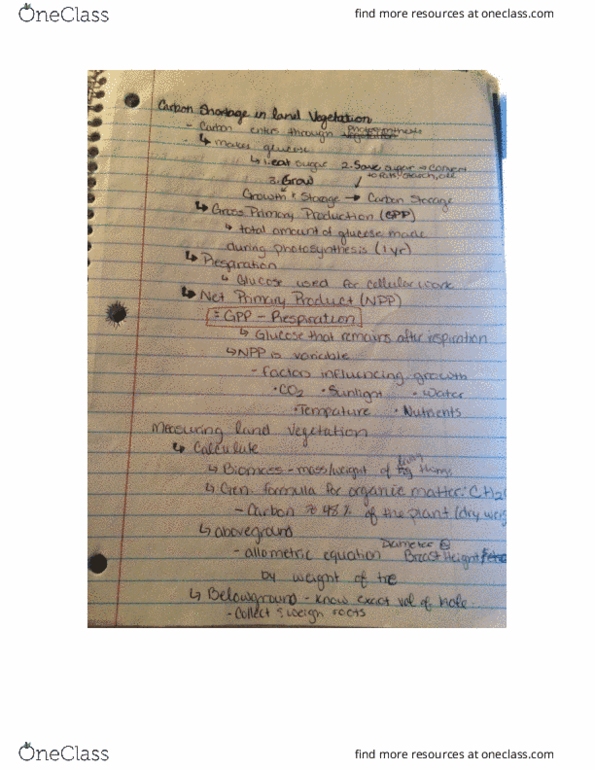 OneClass
find more resources at oneclass.com
Carbon Shortage in land Vegetation
- Carbon enters through photosynthesis
- ↳ makes glucose
↳ 1. eat sugar 2. Save sugar → convert
3. Grow to fats, starch, oil
Growth & Storage → Carbon Storage
↳ Gross Primary Production (GPP)
↳ total amount of glucose made
during photosythesis (1 yr)
↳ Respiration
↳ Glucose used for cellular work
↳ Net Primary Product (NPP)
= GPP - Respiration
↳ Glucose that remains after respiration
↳ NPP is variable
- factors influencing growth
• CO2 • Sunlight • Water
• Tempature • Nutrients
Measuring land vegetation
↳ Calculate
↳ Biomass - mass/weight of living
↳ Gen. formula for organic matter: CH2
- Carbon ≈ 48% of the plant (dry weig
↳ aboveground
- allometric equation Diameter @
Breast Height
by weight of tre
↳ Belowground - know exact vol of hole
- Collect & weigh roots
OneClass
find more resources at oneclass.com